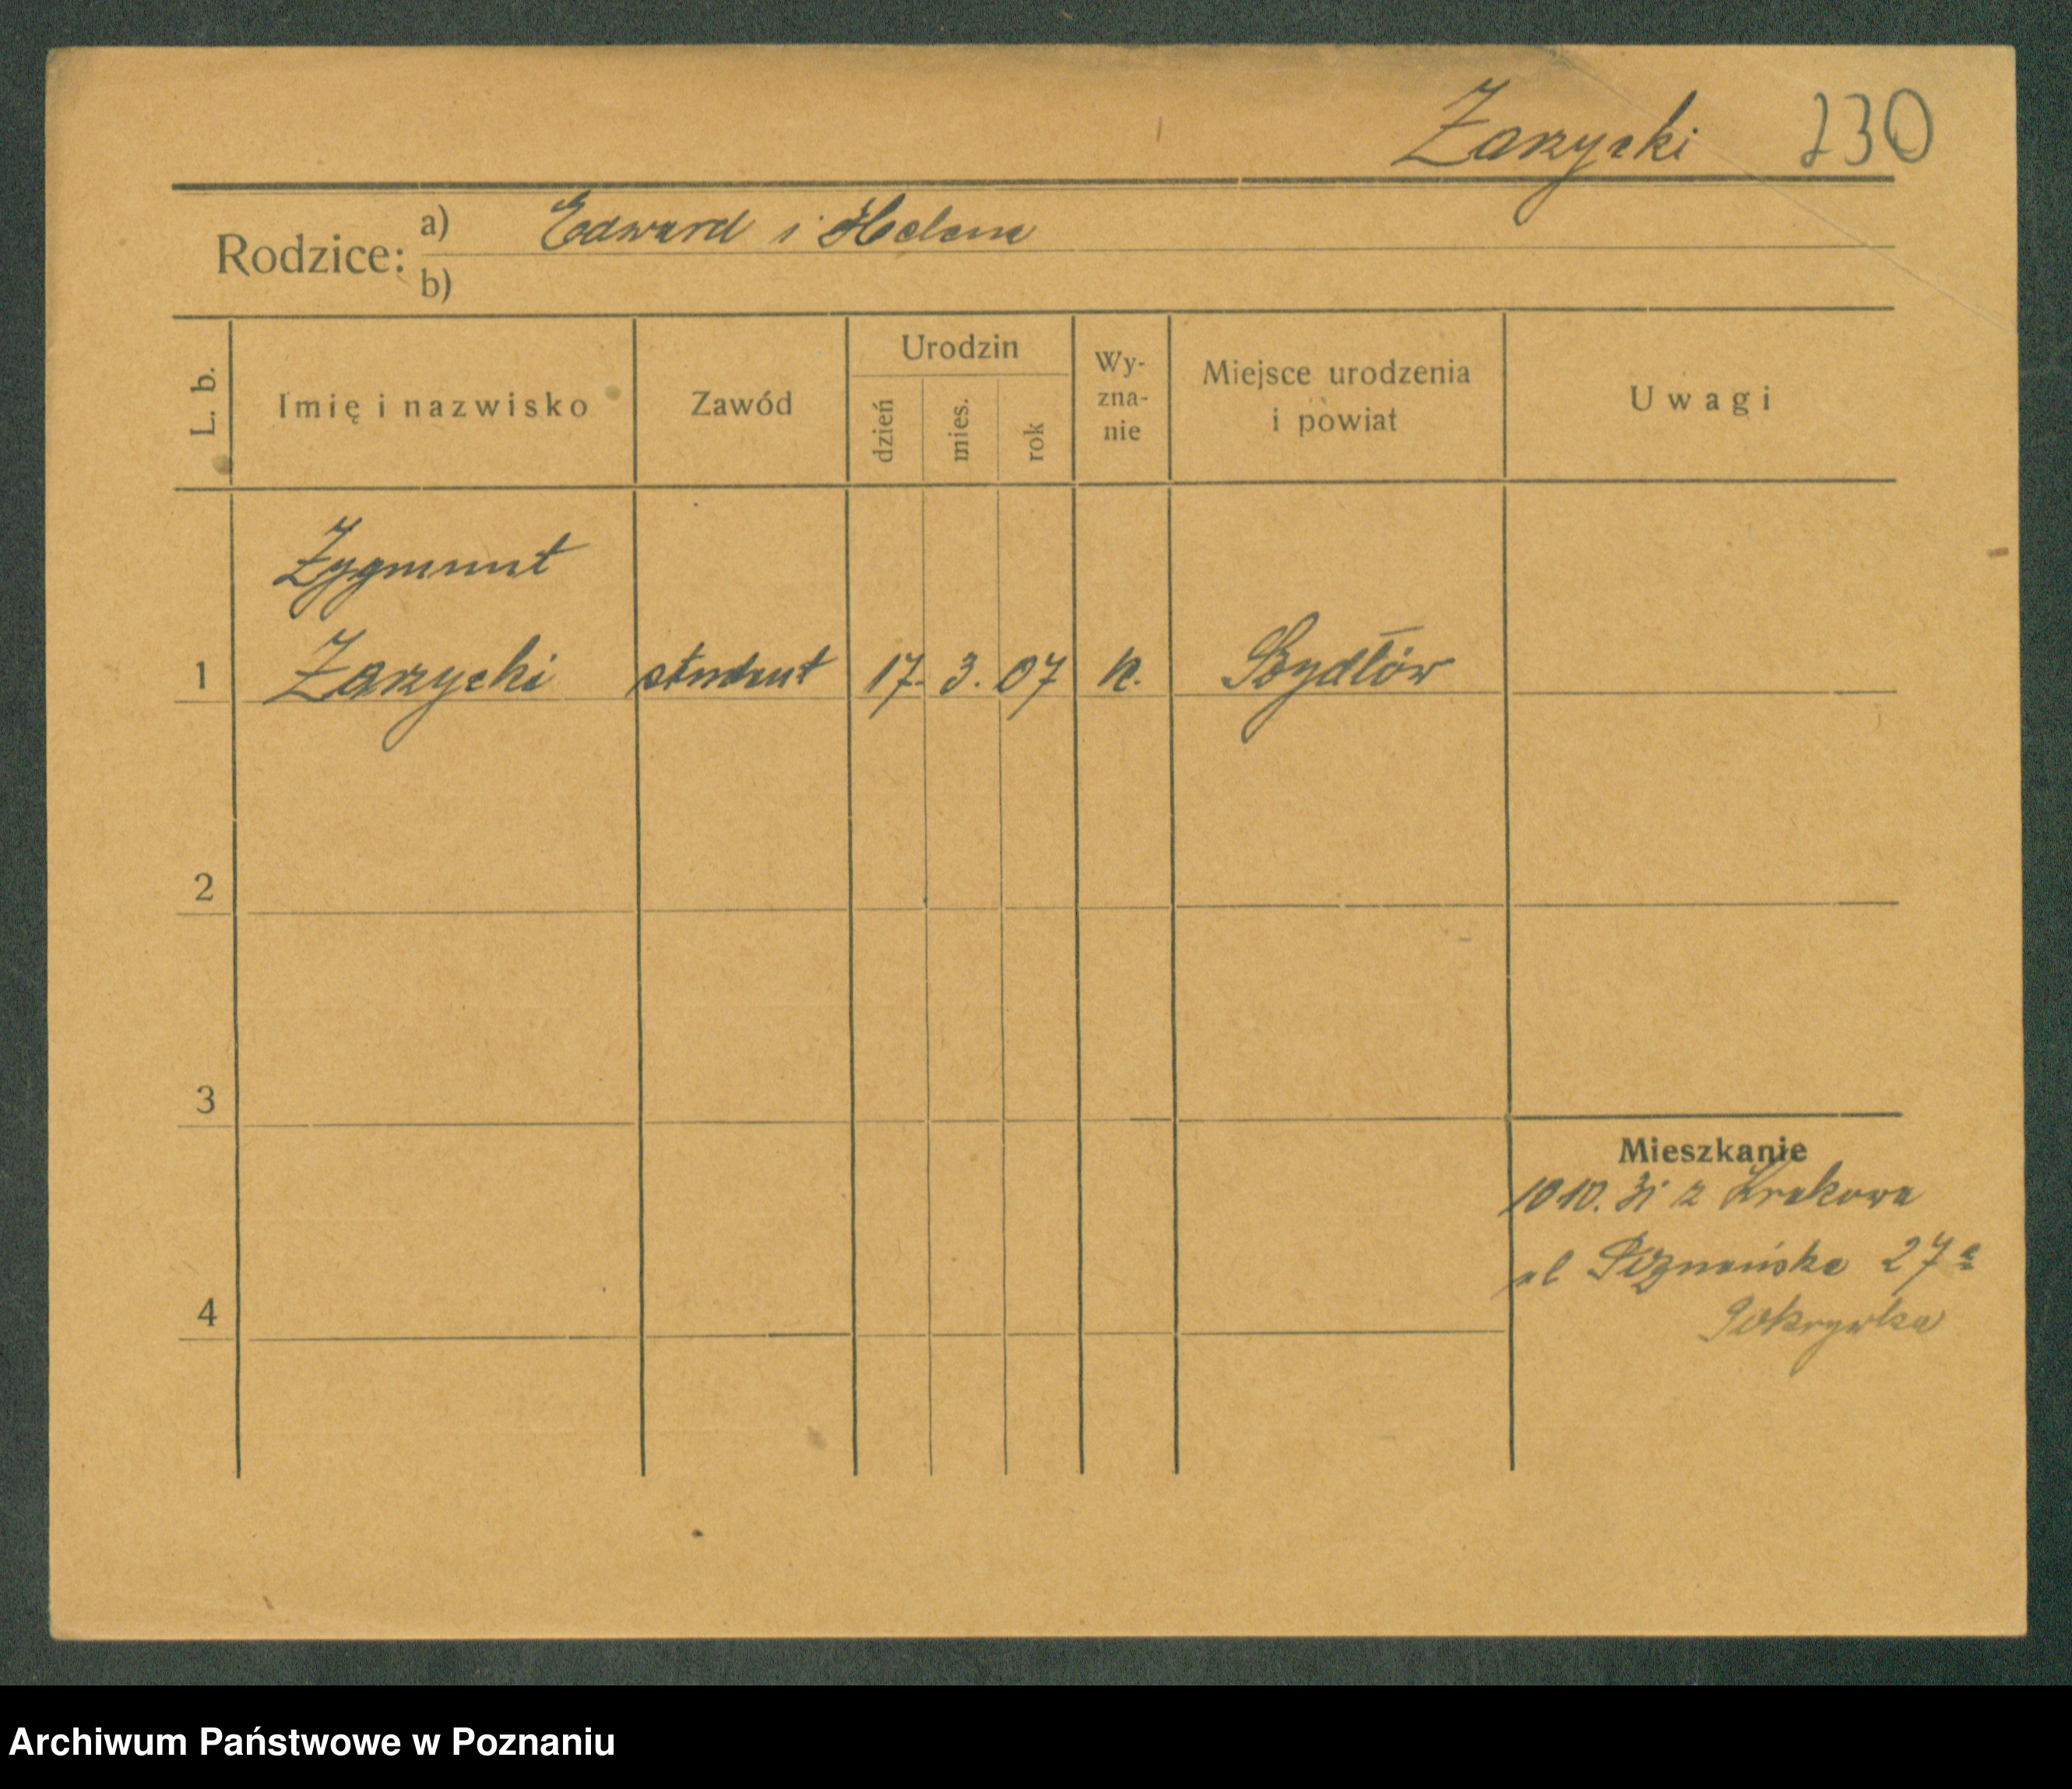 Zarzycki 230
Rodzice: a) Edward i Helena
b)
L. b. Imię i nazwisko Zawód Urodzin dzień mies. rok Wy-zna-nie Miejsce urodzenia i powiat Uwagi
Zygmunt
1 Zarzycki student 17. 3. 07 k. Szydłów
2
3
Mieszkanie
10 10. 31 z Krakowa
ul Poznańska 27a
4
Pokrywka
Archiwum Państwowe w Poznaniu